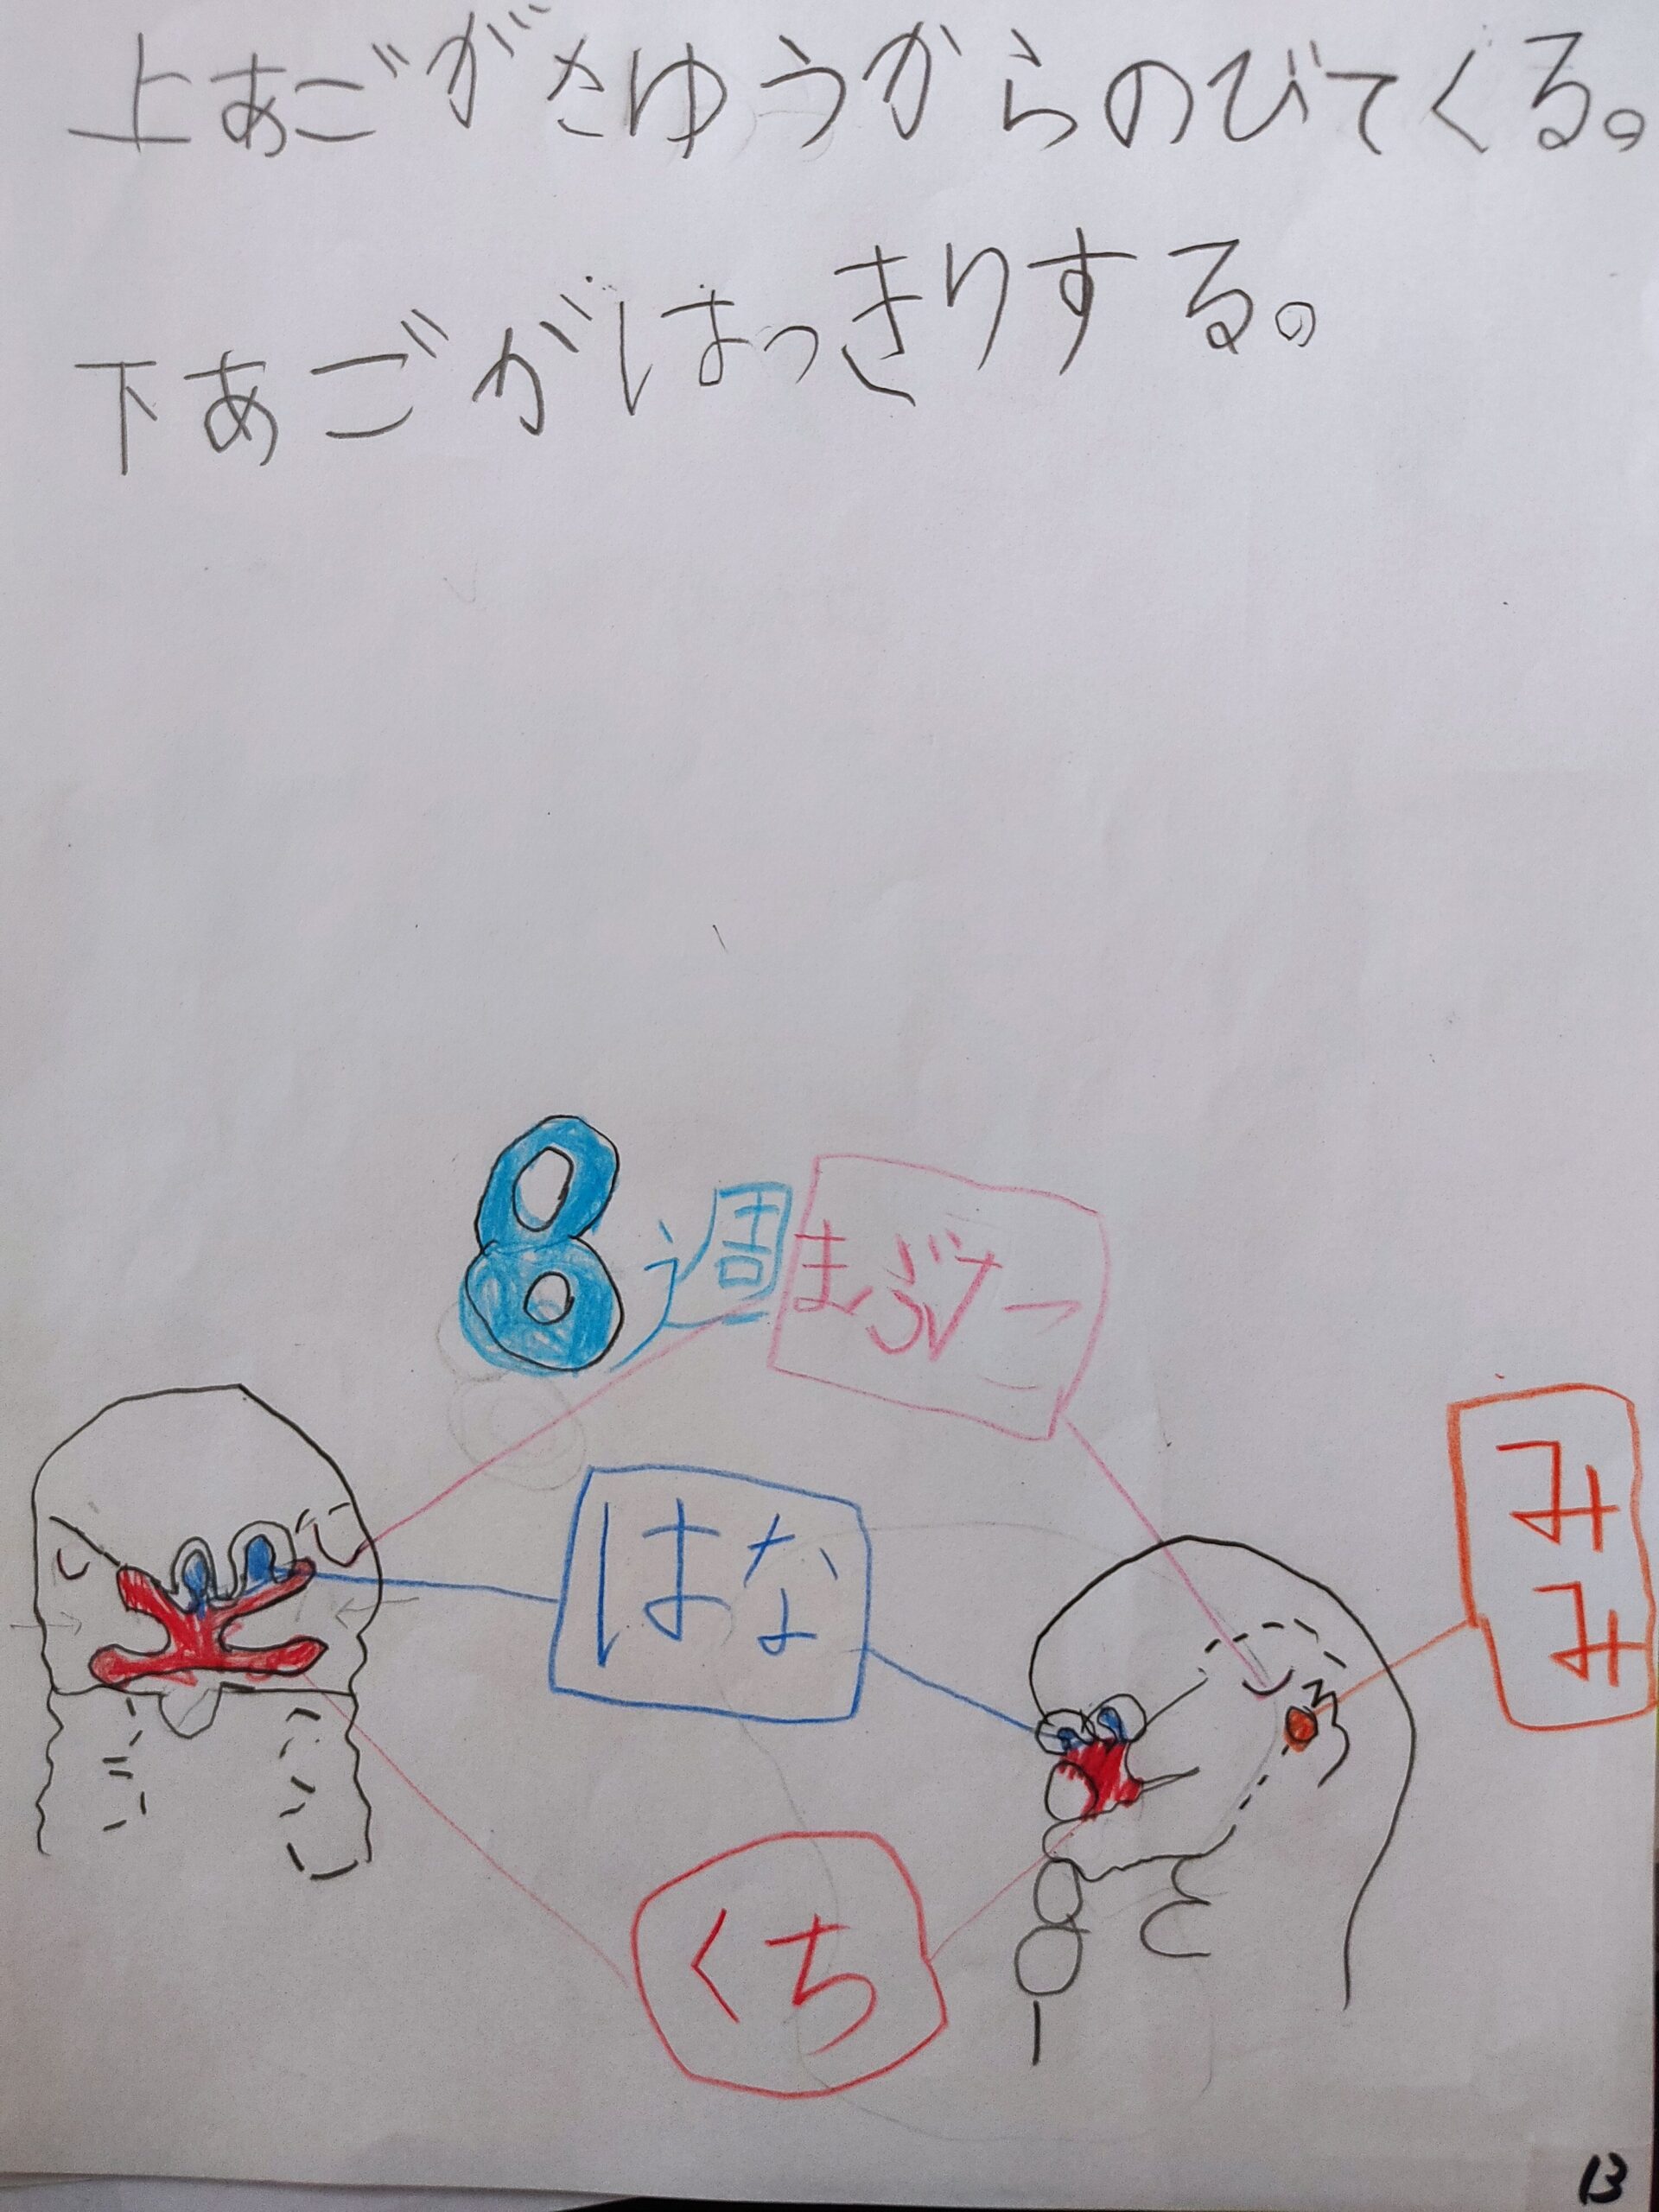 上あごがさゆうからのびてくる。
下あごがはっきりする。
8週
まぶた
はな
みみ
くち
13